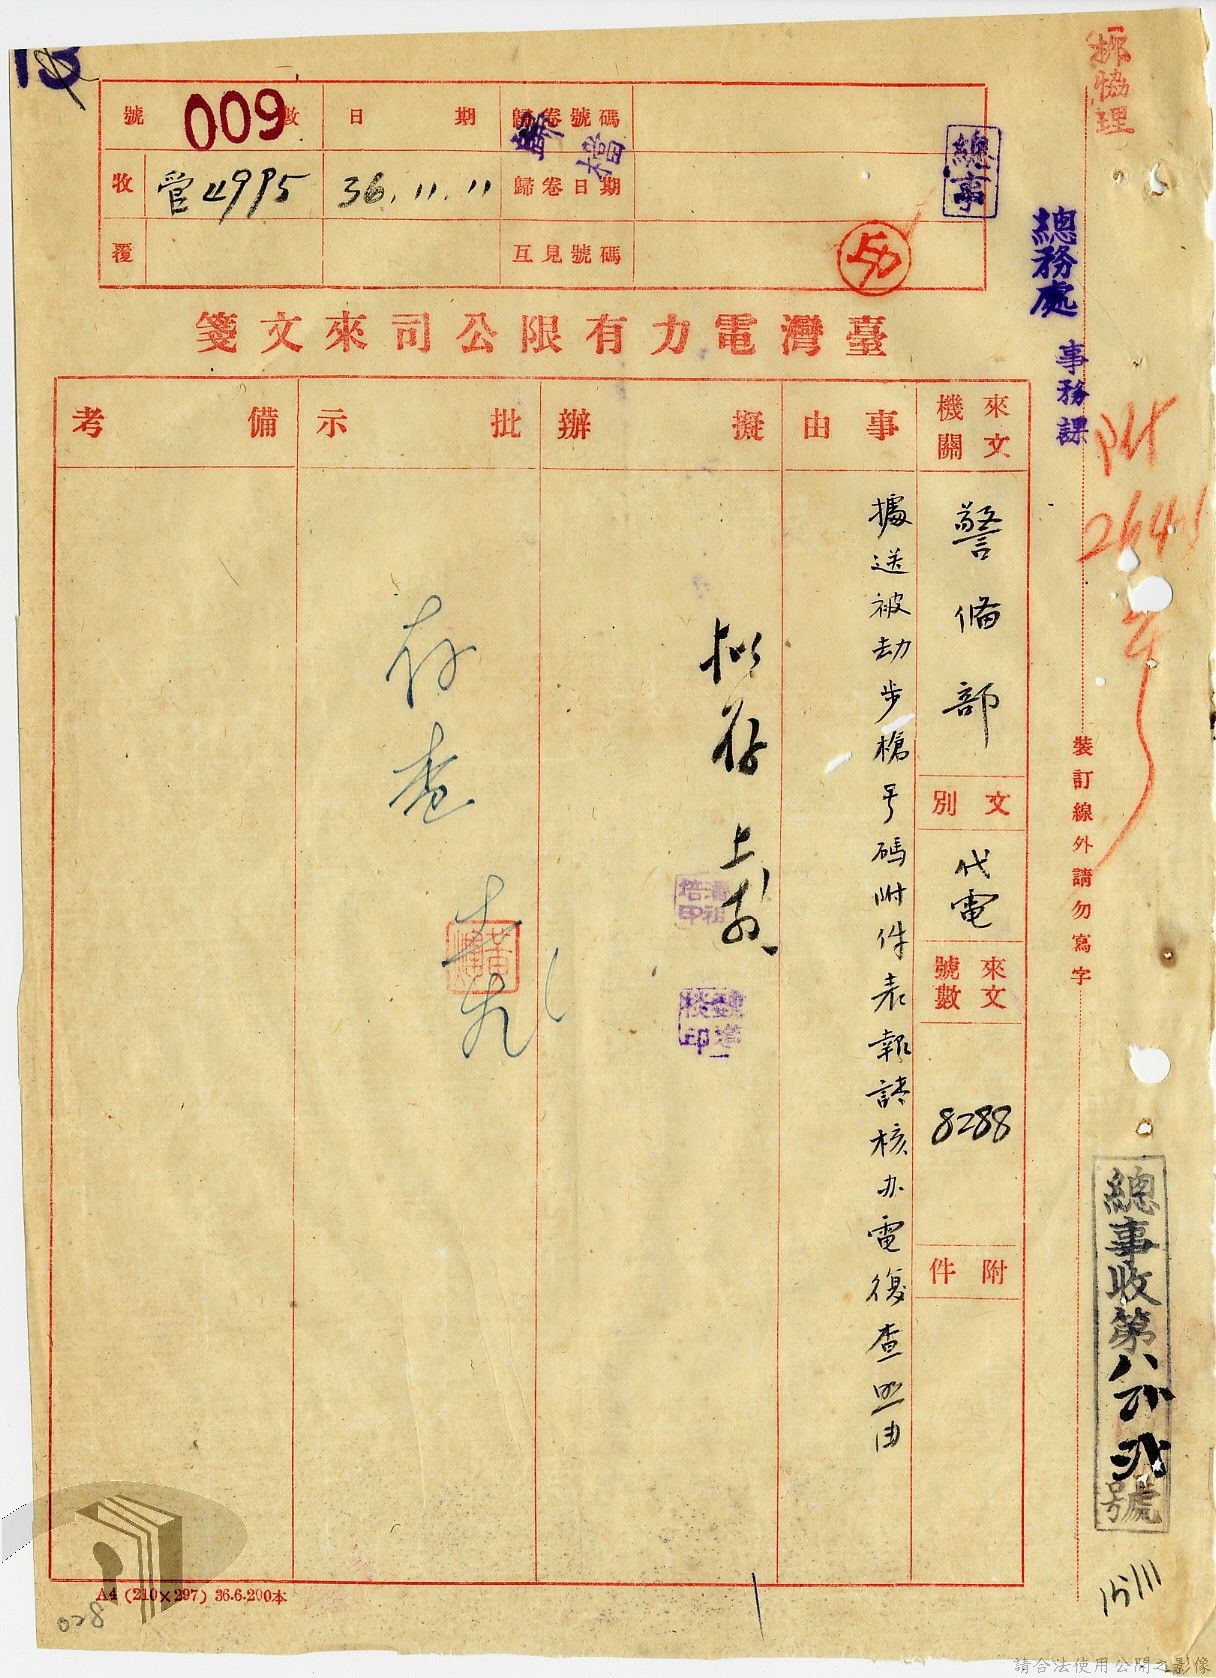 柳協理
總務處 事務課
附
264
裝訂線外請勿寫字
總事收第八 號
15/11
13
009
號數
日期
歸卷號碼
歸檔
總事
收
管4995
36.11.11
歸卷日期
覆
互見號碼
臺灣電力有限公司來文箋
來文機關
警備部
文別
代電
來文號數
8288
附件
事由
據送被劫步槍号碼附件表報請核办電復查照由
擬辦
拟存
潘祖培印
批示
存查
備考
A4 (210×297) 36.6.200本
028
請合法使用公開之影像